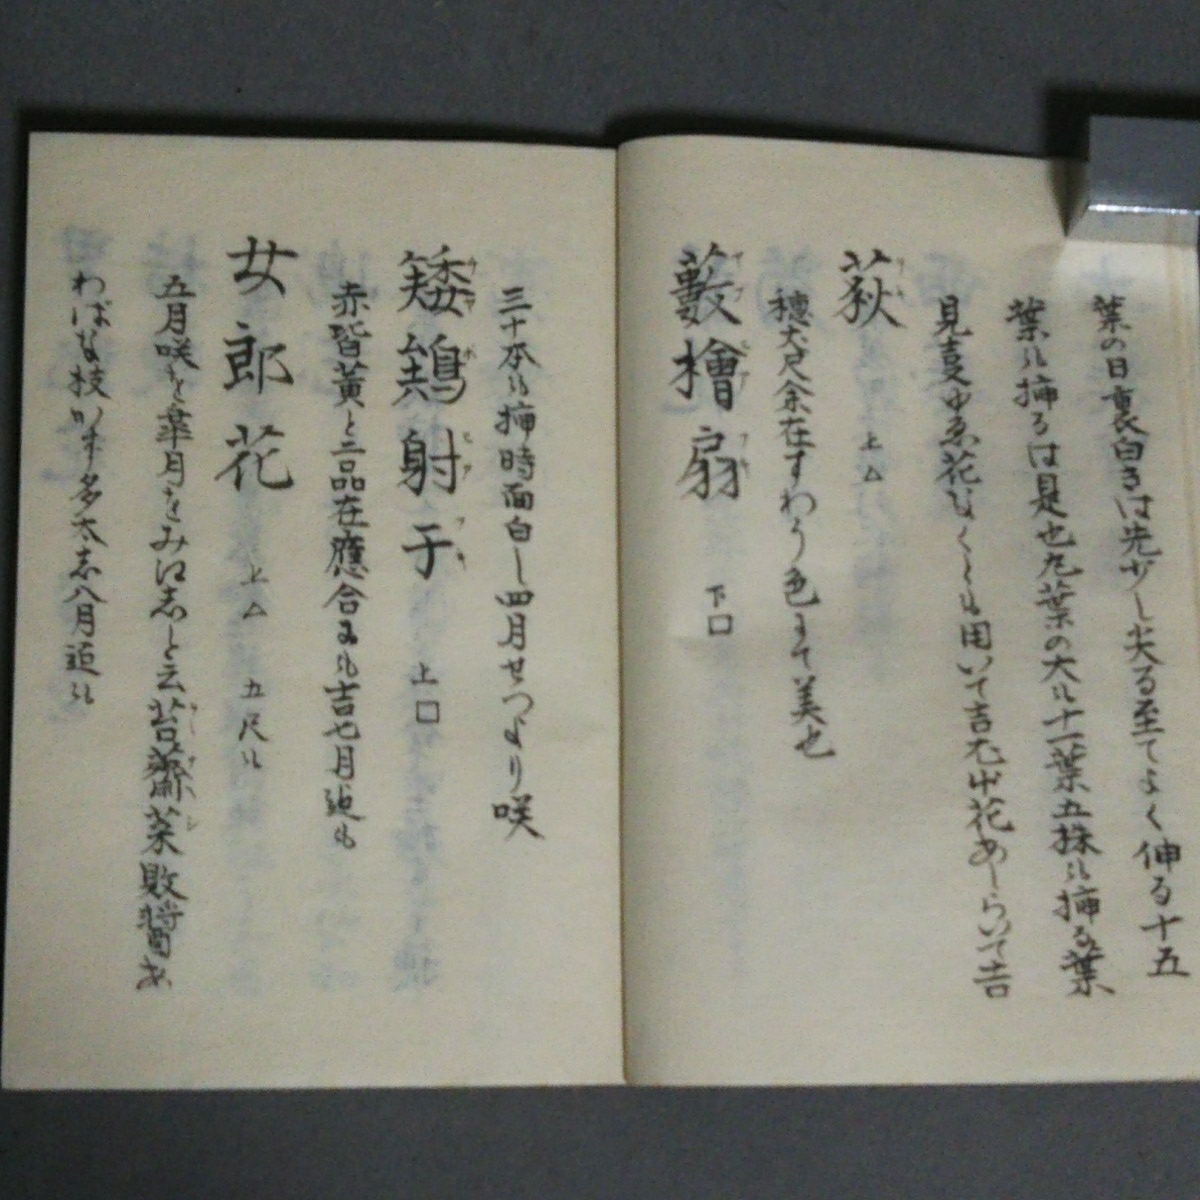 葉の日裏白きは先少し尖る至てよく伸る十五
葉ル挿るは是也丸葉の大ル十一葉五株ル挿る葉
見ゆゑ花なくとも用いて吉尤出花あしらいて吉
荻 上ム
穂大尺余在すわう色にて美也
藪檜扇 下口
三十本ル挿時面白し四月せつより咲
射干 上口
赤皆黄と二品在應合ルも吉七月迄も
女郎花 上ム 五尺ル
五月咲を皐月をみなゑしと云苔薺菜敗醤あ
わばな枝かず多太し八月迄ル